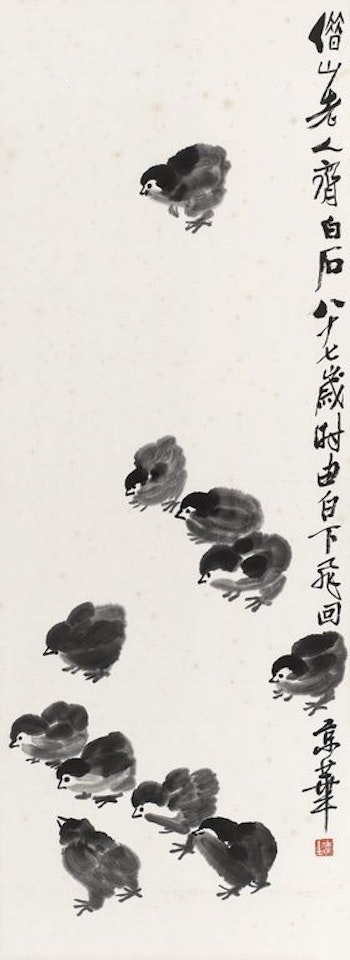 借山老人齊白石八十七歲時由白下飛回京華